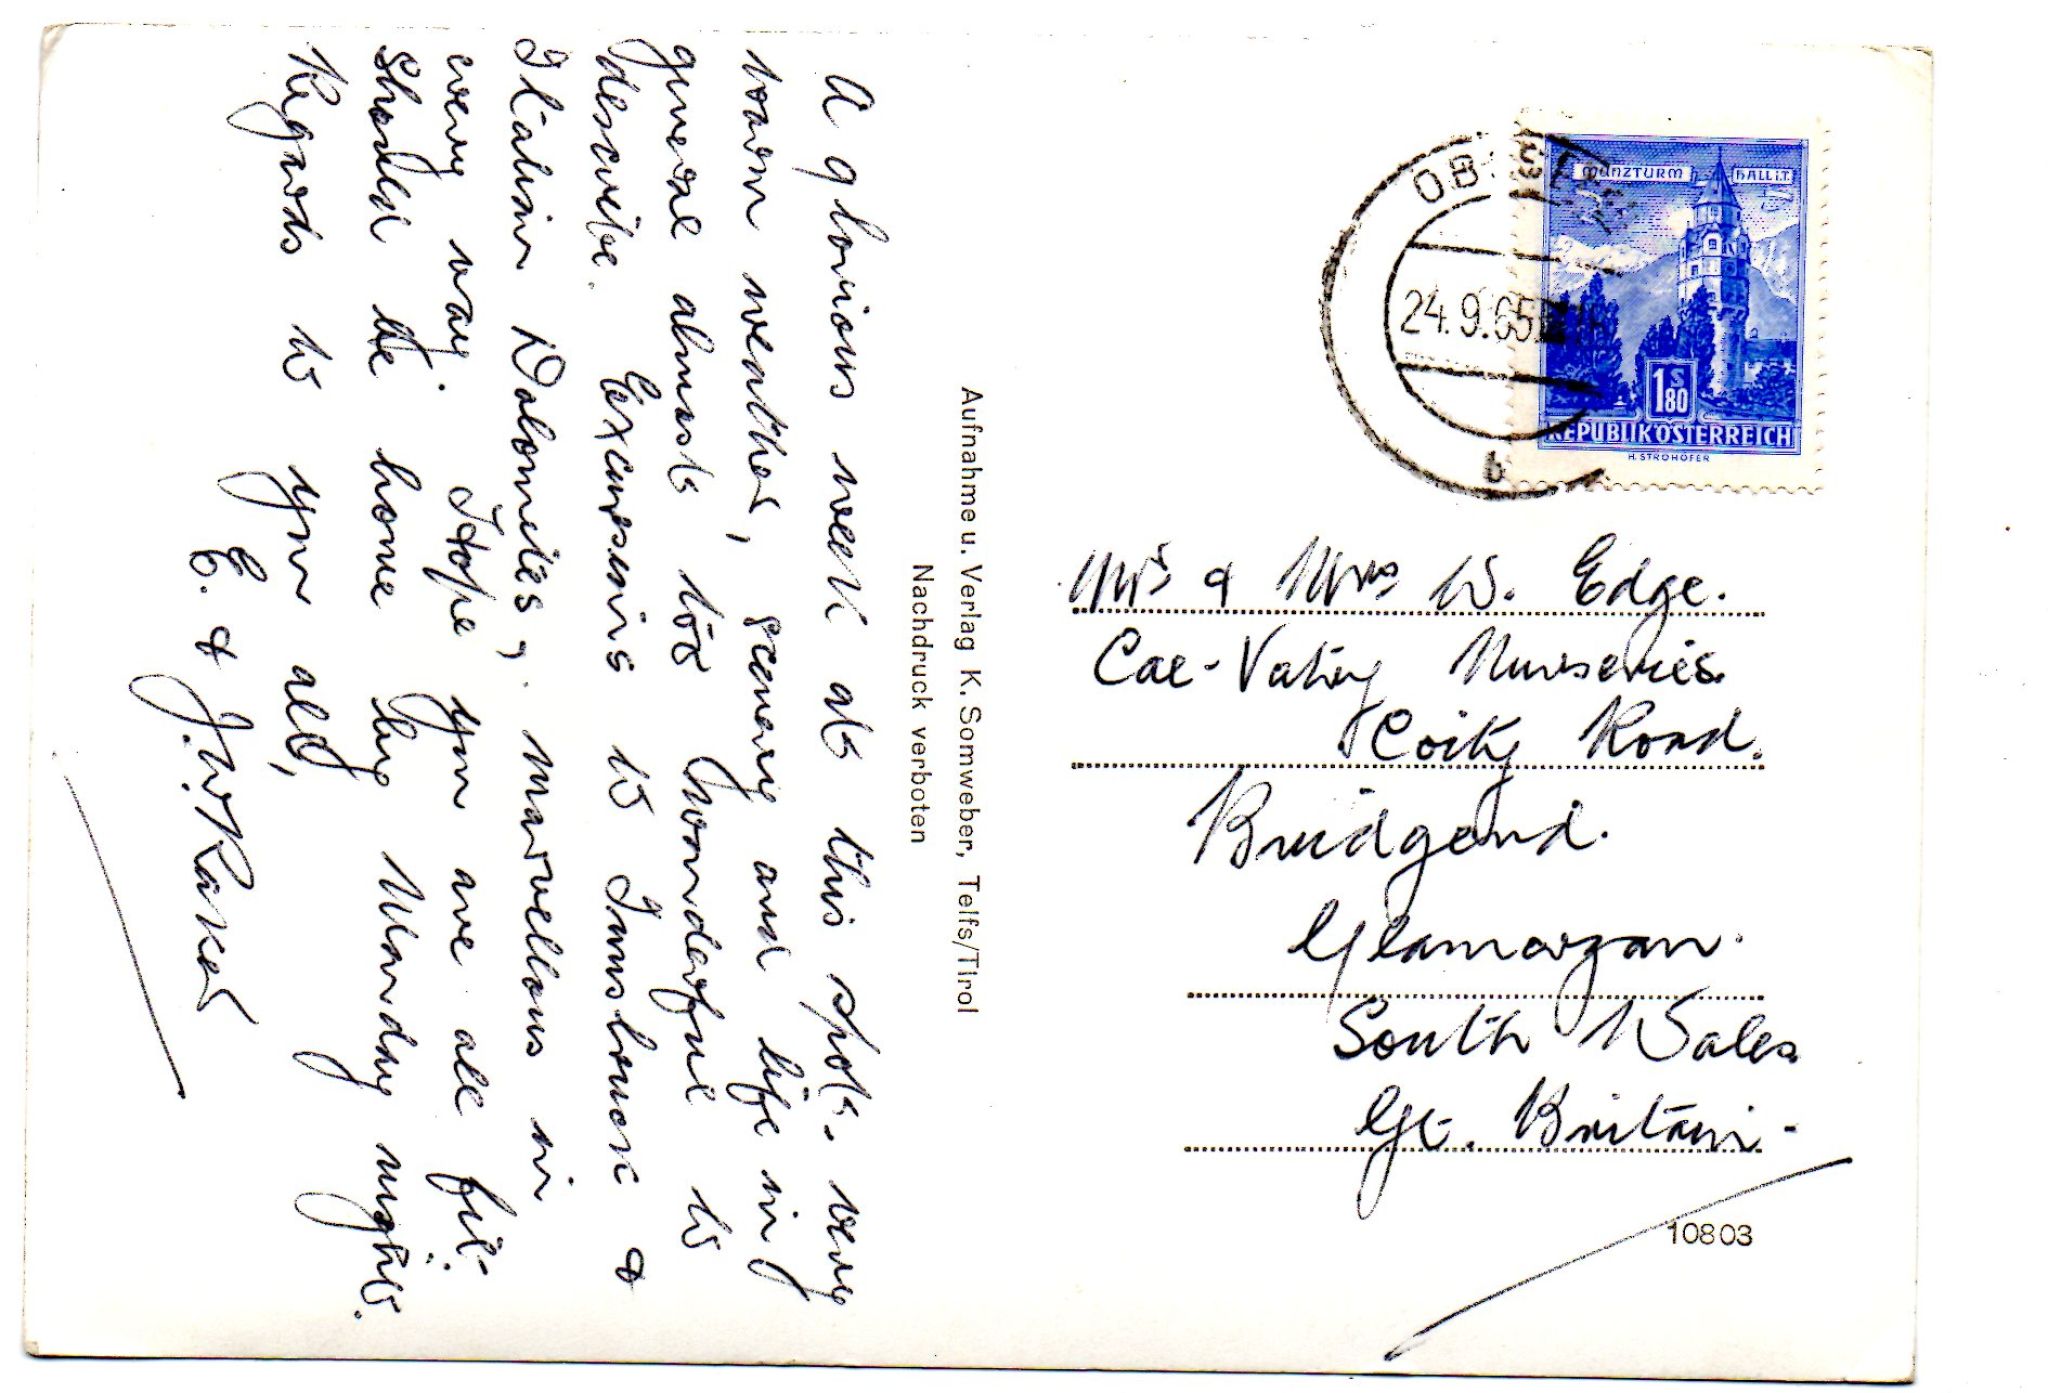 A glorious week at this spot. very
warm weather, scenery and life in
general almost too wonderful to
describe. Excursions to Innsbruck &
Italian Dolomites, marvellous in
every way. Hope you are all fit.
Should be home by Monday night.
Regards to you all,
E. & J.W.
Aufnahme u. Verlag K. Somweber, Telfs/Tirol
Nachdruck verboten
MÜNZTURM HALL i.T.
24.9.65
b
1S80
REPUBLIK ÖSTERREICH
H. STROHOFER
Mrs & Mrs W. Edge.
Nurseries.
Coity Road.
Bridgend.
Glamorgan.
South Wales
Gt. Britain.
10803